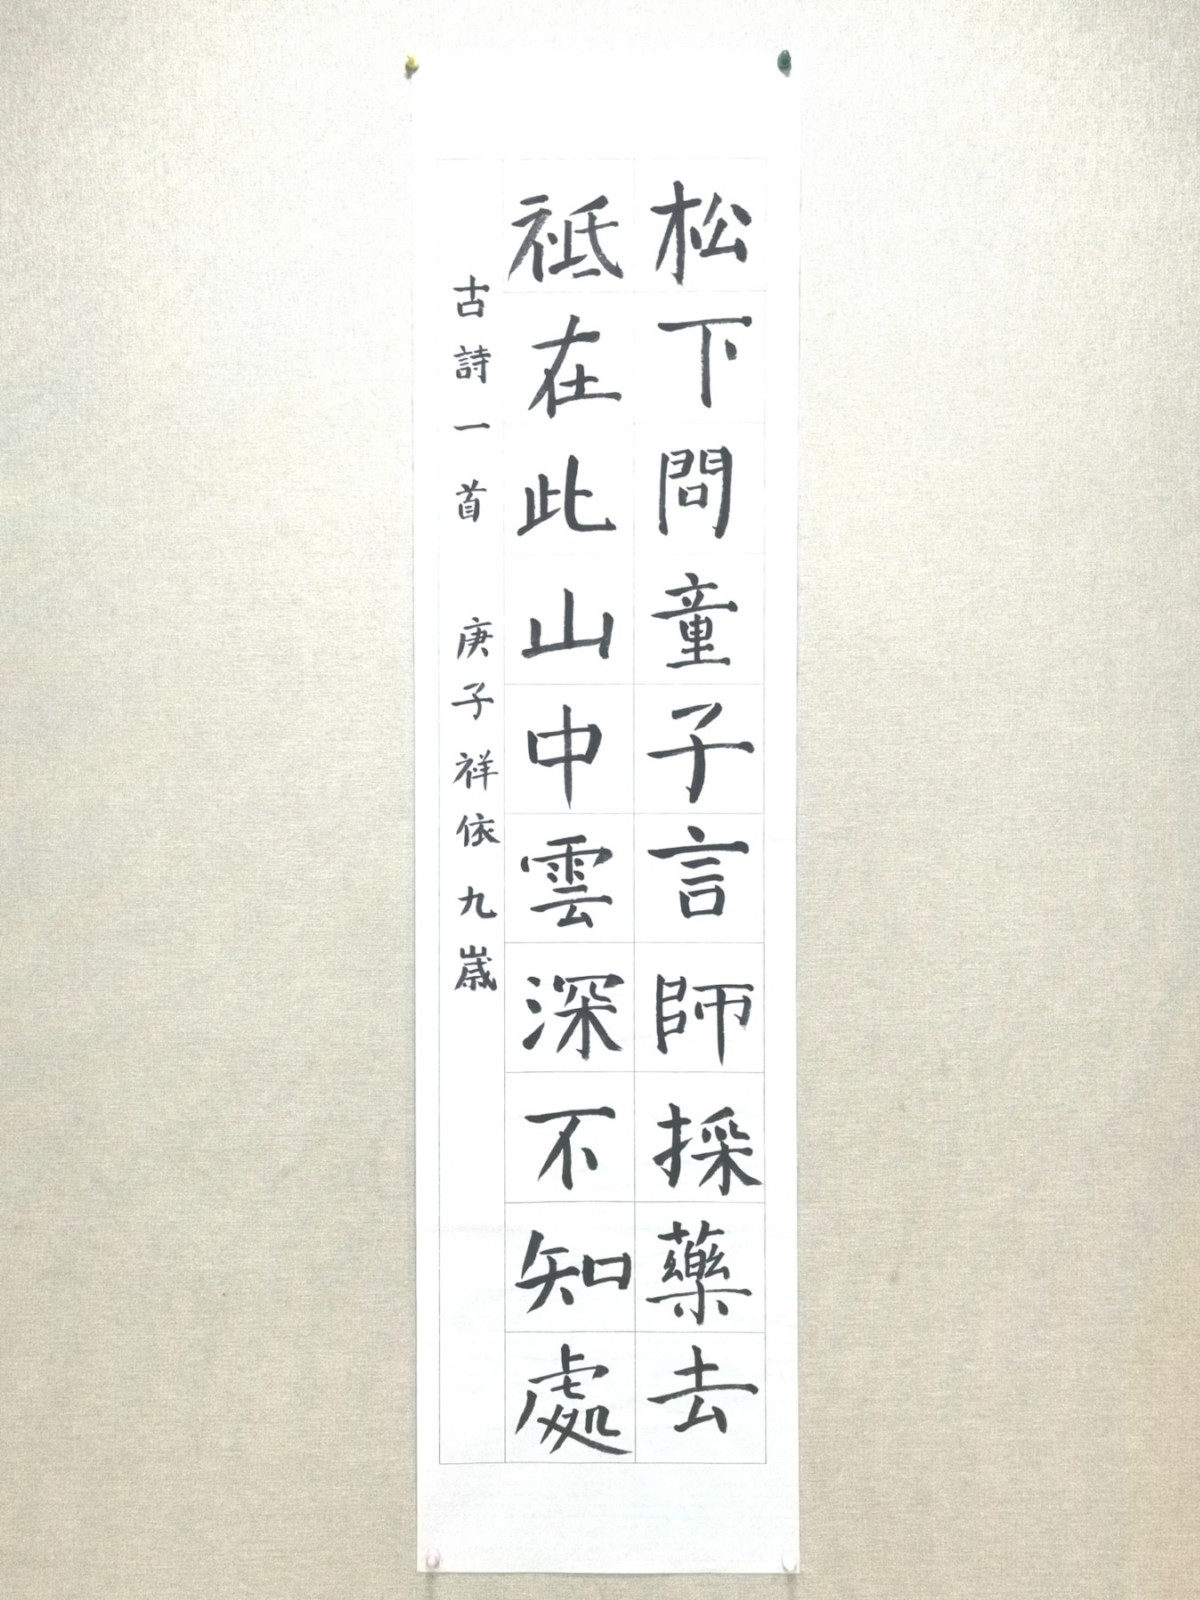 松下問童子言師採藥去
祗在此山中雲深不知處
古詩一首 庚子祥依九歲